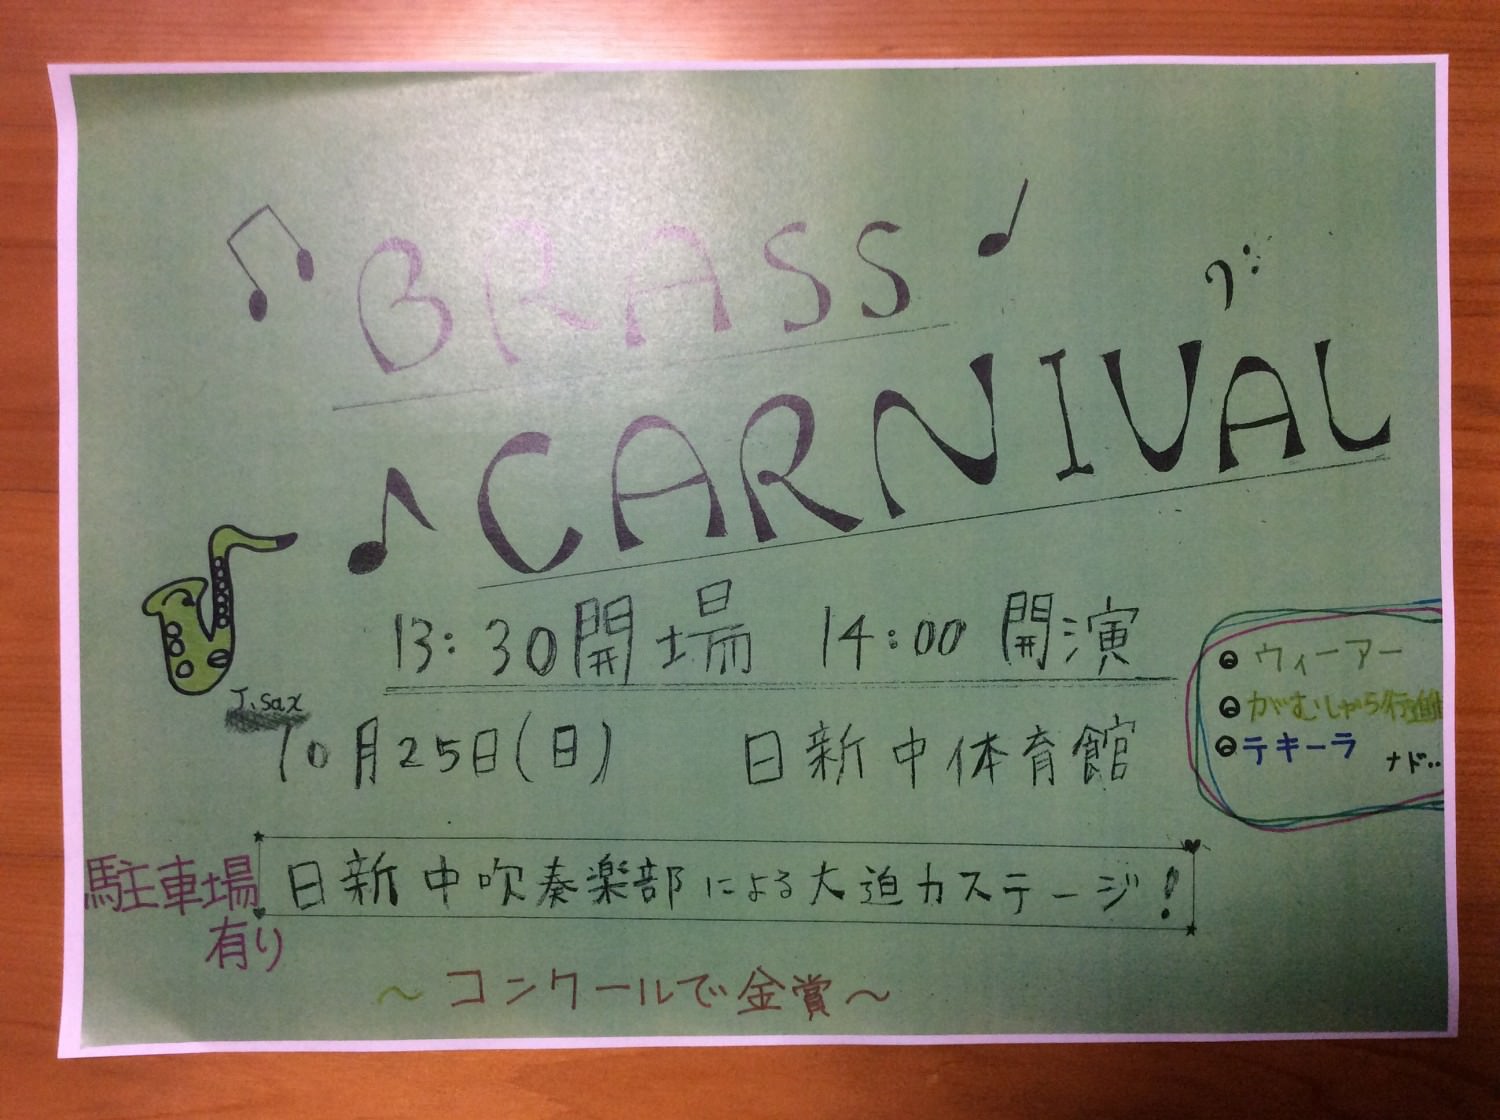 BRASS
CARNIVAL
13:30開場 14:00開演
J.sax
10月25日(日) 日新中体育館
ウィーアー
がむしゃら行進曲
テキーラ
ナド‥
駐車場
有り
日新中吹奏楽部による大迫力ステージ!
～コンクールで金賞～